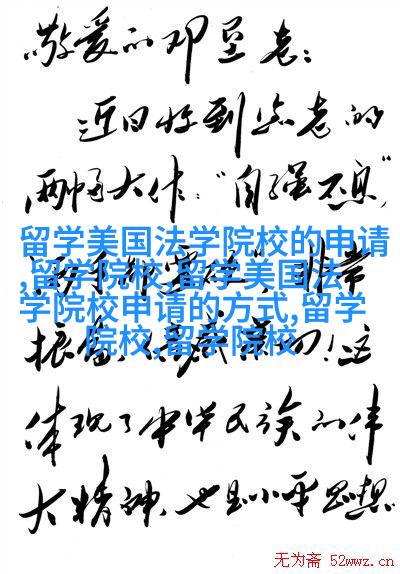 敬爱的邓垦老：
近日收到您老的
两幅大作："自强不息"
留学美国法学院校的申请
,留学院校,留学美国法
学院校申请的方式,留学
院校,留学院校
非常
振奋
！这
体现了中华民族的伟
大精神，也是小平思想
无为斋 52wwz.cn